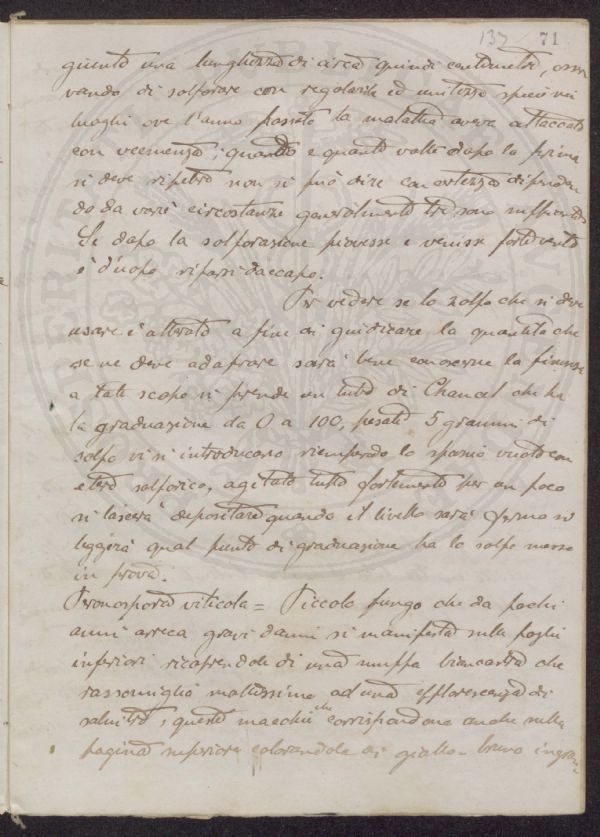 137 71
giunto una lunghezza di circa quindi centimetri, osser
vando di solforare con regolarità ed in
luoghi ove l'anno passato la malattia aveva attaccato
con veemenza; quando e quante volte dopo la prima
si deve ripetere non si può dire con certezza dipenden
do da varie circostanze generalmente tre sono sufficienti
Se dopo la solforazione piovesse e venisse forte vento
è d'uopo rifarsi daccapo.
Per vedere se lo zolfo che si deve
usare è alterato a fine di giudicare la quantità che
se ne deve adoprare sarà bene conoscerne la finezza
a tale scopo si prende un tubo di Chancel che ha
la graduazione da 0 a 100, pesati 5 grammi di
solfo vi si introducono riempiendo lo spazio vuoto con
etere solforico, agitato tutto fortemente per un poco
si lascerà depositare quando il livello sarà fermo si
leggerà qual punto di graduazione ha lo solfo messo
in prova.
Peronospora viticola = Piccolo fungo che da pochi
anni arreca gravi danni si manifesta sulle foglie
inferiori ricoprendole di una muffa biancastra che
rassomiglia moltissimo ad una efflorescenza di
salnitro, queste macchie che corrispondono anche sulla
pagina superiore colorandola di giallo-bruno ingran=